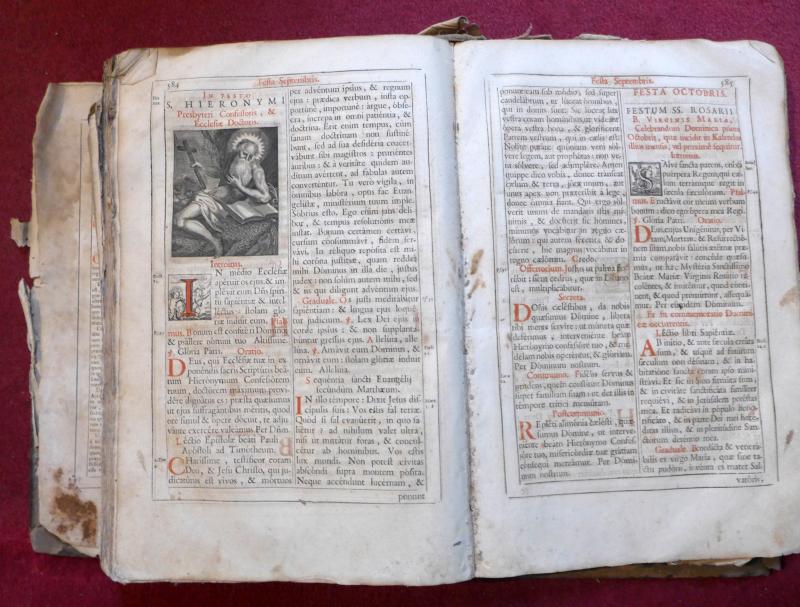 584
Festa Septembris.
IN FESTO
S. HIERONYMI
Presbyteri Confessoris, &
Ecclesiæ Doctoris.
Introitus.
IN médio Ecclésiæ
apéruit os ejus, & im-
plévit eum Dñs spiri-
tu sapiéntiæ & intel-
léctus: stolam gló-
riæ índuit eum. Psal-
mus. Bonum est confitéri Dómino:
& psállere nómini tuo Altíssime.
℣. Glória Patri. Orátio.
DEus, qui Ecclésiæ tuæ in ex-
ponéndis sacris Scriptúris beá-
tum Hierónymum Confessórem
tuum, doctórem máximum provi-
dére dignátus es: præsta quæsumus
ut ejus suffragántibus méritis, quod
ore simul & ópere dócuit, te adju-
vánte exercére valeámus. Per Dñm.
Léctio Epístolæ beáti Pauli
Apóstoli ad Timótheum.
CHaríssime, testíficor coram
Deo, & Jesu Christo, qui ju-
dicatúrus est vivos, & mórtuos
per advéntum ipsíus, & regnum
ejus: prædica verbum, insta op-
portúne, importúne: árgue, óbse-
cra, íncrepa in omni patiéntia, &
doctrína. Erit enim tempus, cùm
sanam doctrínam non sustiné-
bunt, sed ad sua desidéria coacer-
vábunt sibi magístros: pruriéntes
áuribus: & à veritáte quidem au-
dítum avértent, ad fábulas autem
converténtur. Tu verò vígila, in
ómnibus labóra, opus fac Evan-
gelístæ, ministérium tuum imple.
Sóbrius esto. Ego enim jam deli-
bor, & tempus resolutiónis meæ
instat. Bonum certámen certávi,
cursum consummávi, fidem ser-
vávi. In réliquo repósita est mi-
hi coróna justítiæ, quam reddet
mihi Dóminus in illa die, justus
judex: non solùm autem mihi, sed
& iis qui díligunt advéntum ejus.
Graduale. Os justi meditábitur
sapiéntiam: & língua ejus loqué-
tur judícium. ℣. Lex Dei ejus in
corde ipsíus: & non supplantá-
buntur gressus ejus. Allelúia, alle-
lúia. ℣. Amávit eum Dóminus, &
ornávit eum: stolam glóriæ índuit
eum. Allelúia.
Sequéntia sancti Evangélij
secúndùm Matthǽum.
IN illo témpore: Dixit Jesus dis-
cípulis suis: Vos estis sal terræ.
Quòd si sal evanúerit, in quo sa-
liétur? ad níhilum valet ultrà,
nisi ut mittátur foras, & concul-
cétur ab homínibus. Vos estis
lux mundi. Non potest cívitas
abscóndi supra montem pósita.
Neque accéndunt lucérnam, &
ponunt
Festa Septembris.
585
ponunt eam sub módio, sed super
candelábrum, ut lúceat ómnibus,
qui in domo sunt. Sic lúceat lux
vestra coram homínibus, ut vídeant
ópera vestra bona, & gloríficent
Patrem vestrum, qui in cælis est.
Nolíte putáre quóniam veni sól-
vere legem, aut prophétas: non ve-
ni sólvere, sed adimplére. Amen
quippe dico vobis, donec tránseat
cælum & terra, jota unum, aut
unus apex non præteríbit à lege,
donec ómnia fiant. Qui ergo sól-
verit unum de mandátis istis mí-
nimis, & docúerit sic hómines,
mínimus vocábitur in regno cæ-
lórum: qui autem fécerit, & do-
cúerit, hic magnus vocábitur in
regno cælórum. Credo.
Offertorium. Justus ut palma flo-
rébit: sicut cedrus, quæ in Líbano
est, multiplicábitur.
Secreta.
DOnis cæléstibus, da nobis
quæsumus Dómine, líbera
tibi mente servíre: ut múnera quæ
deférimus, interveniénte beáto
Hierónymo confessóre tuo, & me-
délam nobis operéntur, & glóriam.
Per Dóminum nostrum.
Communio. Fidélis servus &
prudens, quem constítuit Dóminus
super famíliam suam: ut det illis in
témpore trítici mensúram.
Postcommunio.
REpléti alimónia cælésti, quæ-
sumus Dómine, ut interve-
niénte beáto Hierónymo Confes-
sóre tuo, misericórdiæ tuæ grátiam
cónsequi mereámur. Per Dómi-
num nostrum.
FESTA OCTOBRIS.
FESTUM SS. ROSARII
B. VIRGINIS MARIÆ,
Celebrandum Dominica prima
Octobris, quæ incidit in Kalendas
illius mensis, vel proximè sequitur.
Introitus.
SAlve sancta parens, eníxa
puérpera Regem, qui cæ-
lum terrámque regit in
sǽcula sæculórum. Psal-
mus. Eructávit cor meum verbum
bonum: dico ego ópera mea Regi.
℣. Glória Patri. Orátio.
DEus, cujus Unigénitus, per Vi-
tam, Mortem, & Resurrectió-
nem suam, nobis salútis ætérnæ præ-
mia comparávit: concéde quæsu-
mus, ut hæc Mystéria Sanctíssimo
Beátæ Maríæ Vírginis Rosário re-
coléntes, & imitémur, quod cóntinent,
& quod promíttunt, assequá-
mur. Per eúmdem Dóminum.
Et fit commemoratio Domini-
cæ occurrentis.
Léctio libri Sapiéntiæ.
AB inítio, & ante sǽcula creáta
sum, & usque ad futúrum
sǽculum non désinam, & in ha-
bitatióne sancta coram ipso mini-
strávi. Et sic in Sion firmáta sum;
& in civitáte sanctificáta simíliter
requiévi, & in Jerúsalem potéstas
mea. Et radicávi in pópulo hono-
rificáto, & in parte Dei mei heré-
ditas illíus, & in plenitúdine San-
ctórum deténtio mea.
Graduale. Benedícta & venerá-
bilis es virgo María, quæ sine ta-
ctu pudóris, inventa es mater Sal-
vatóris.